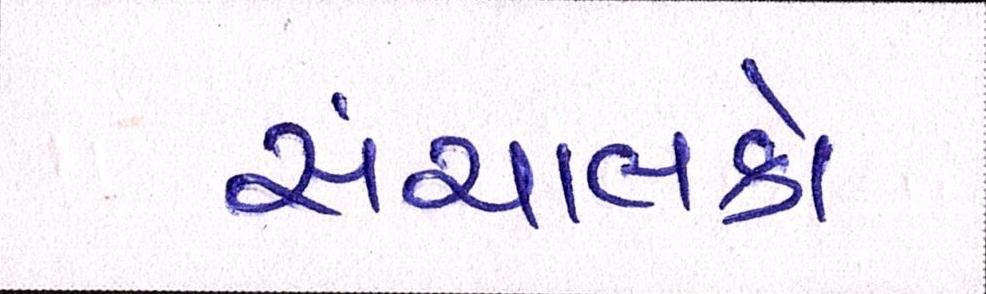 સંચાલકો